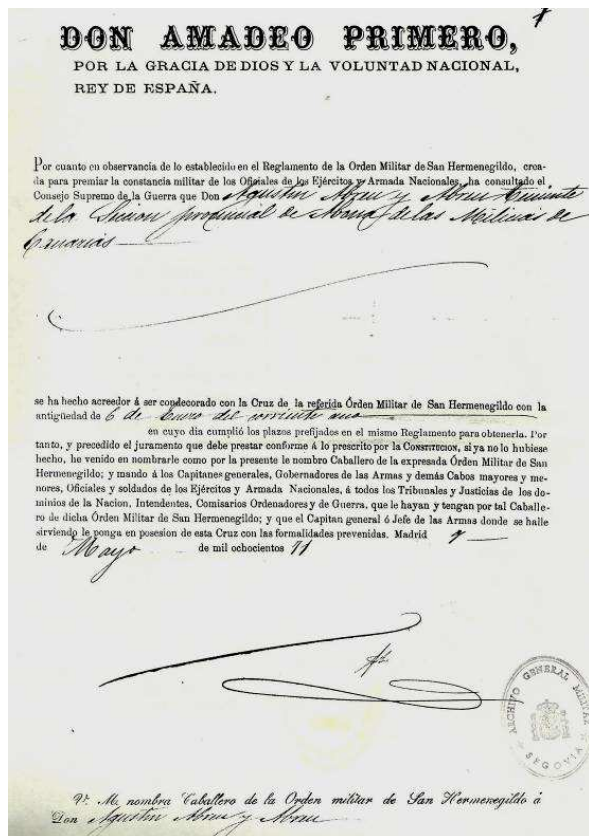 DON AMADEO PRIMERO,
POR LA GRACIA DE DIOS Y LA VOLUNTAD NACIONAL,
REY DE ESPAÑA.
Por cuanto en observancia de lo establecido en el Reglamento de la Orden Militar de San Hermenegildo, crea-
da para premiar la constancia militar de los Oficiales de los Ejércitos y Armada Nacionales, ha consultado el
Consejo Supremo de la Guerra que Don Agustin Abreu y Abreu Teniente
de la Seccion provincial de Abona de las Milicias de
Canarias
se ha hecho acreedor á ser condecorado con la Cruz de la referida Órden Militar de San Hermenegildo con la
antigüedad de 6 de Enero del corriente año
en cuyo dia cumplió los plazos prefijados en el mismo Reglamento para obtenerla. Por
tanto, y precedido el juramento que debe prestar conforme á lo prescrito por la CONSTITUCION, si ya no lo hubiese
hecho, he venido en nombrarle como por la presente le nombro Caballero de la expresada Órden Militar de San
Hermenegildo; y mando á los Capitanes generales, Gobernadores de las Armas y demás Cabos mayores y me-
nores, Oficiales y soldados de los Ejércitos y Armada Nacionales, á todos los Tribunales y Justicias de los do-
minios de la Nacion, Intendentes, Comisarios Ordenadores y de Guerra, que le hayan y tengan por tal Caballe-
ro de dicha Órden Militar de San Hermenegildo; y que el Capitan general ó Jefe de las Armas donde se halle
sirviendo le ponga en posesion de esta Cruz con las formalidades prevenidas. Madrid 9
de Mayo de mil ochocientos 71
ARCHIVO GENERAL MILITAR
SEGOVIA
V. M. nombra Caballero de la Orden militar de San Hermenegildo á
Don Agustin Abreu y Abreu